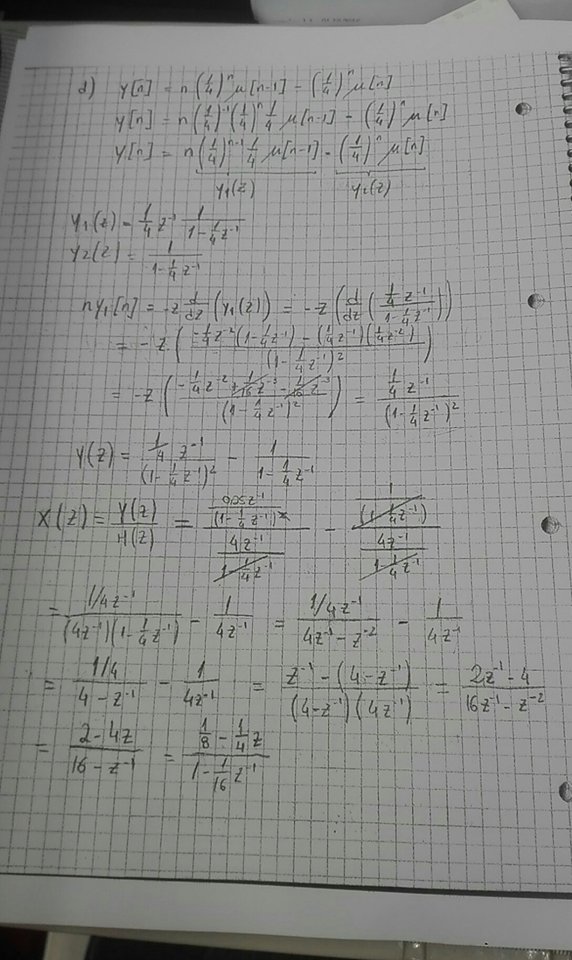 d) y[n] = n(1/4)^n μ[n-1] - (1/4)^n μ[n]
y[n] = n(1/4)^-1 (1/4)^n 1/4 μ[n-1] - (1/4)^n μ[n]
y[n] = n(1/4)^n-1 1/4 μ[n-1] - (1/4)^n μ[n]
y1(z) y2(z)
Y1(z) = 1/4 z^-1 1/(1 - 1/4 z^-1)
Y2(z) = 1/(1 - 1/4 z^-1)
n y1[n] = -z d/dz (Y1(z)) = -z (d/dz ((1/4 z^-1)/(1 - 1/4 z^-1)))
= -z ((-1/4 z^-2 (1 - 1/4 z^-1) - (1/4 z^-1)(1/4 z^-2))/(1 - 1/4 z^-1)^2)
= -z ((-1/4 z^-2 + 1/16 z^-3 - 1/16 z^-3)/(1 - 1/4 z^-1)^2) = (1/4 z^-1)/(1 - 1/4 z^-1)^2
Y(z) = (1/4 z^-1)/(1 - 1/4 z^-1)^2 - 1/(1 - 1/4 z^-1)
X(z) = Y(z)/H(z) = (0.25z^-1/(1 - 1/4 z^-1)^2)/(4z^-1/(1 - 1/4 z^-1)) - (1/(1 - 1/4 z^-1))/(4z^-1/(1 - 1/4 z^-1))
= (1/4 z^-1)/((4z^-1)(1 - 1/4 z^-1)) - 1/(4z^-1) = (1/4 z^-1)/(4z^-1 - z^-2) - 1/(4z^-1)
= (1/4)/(4 - z^-1) - 1/(4z^-1) = (z^-1 - (4 - z^-1))/((4 - z^-1)(4z^-1)) = (2z^-1 - 4)/(16z^-1 - z^-2)
= (2 - 4z)/(16 - z^-1) = (1/8 - 1/4 z)/(1 - 1/16 z^-1)